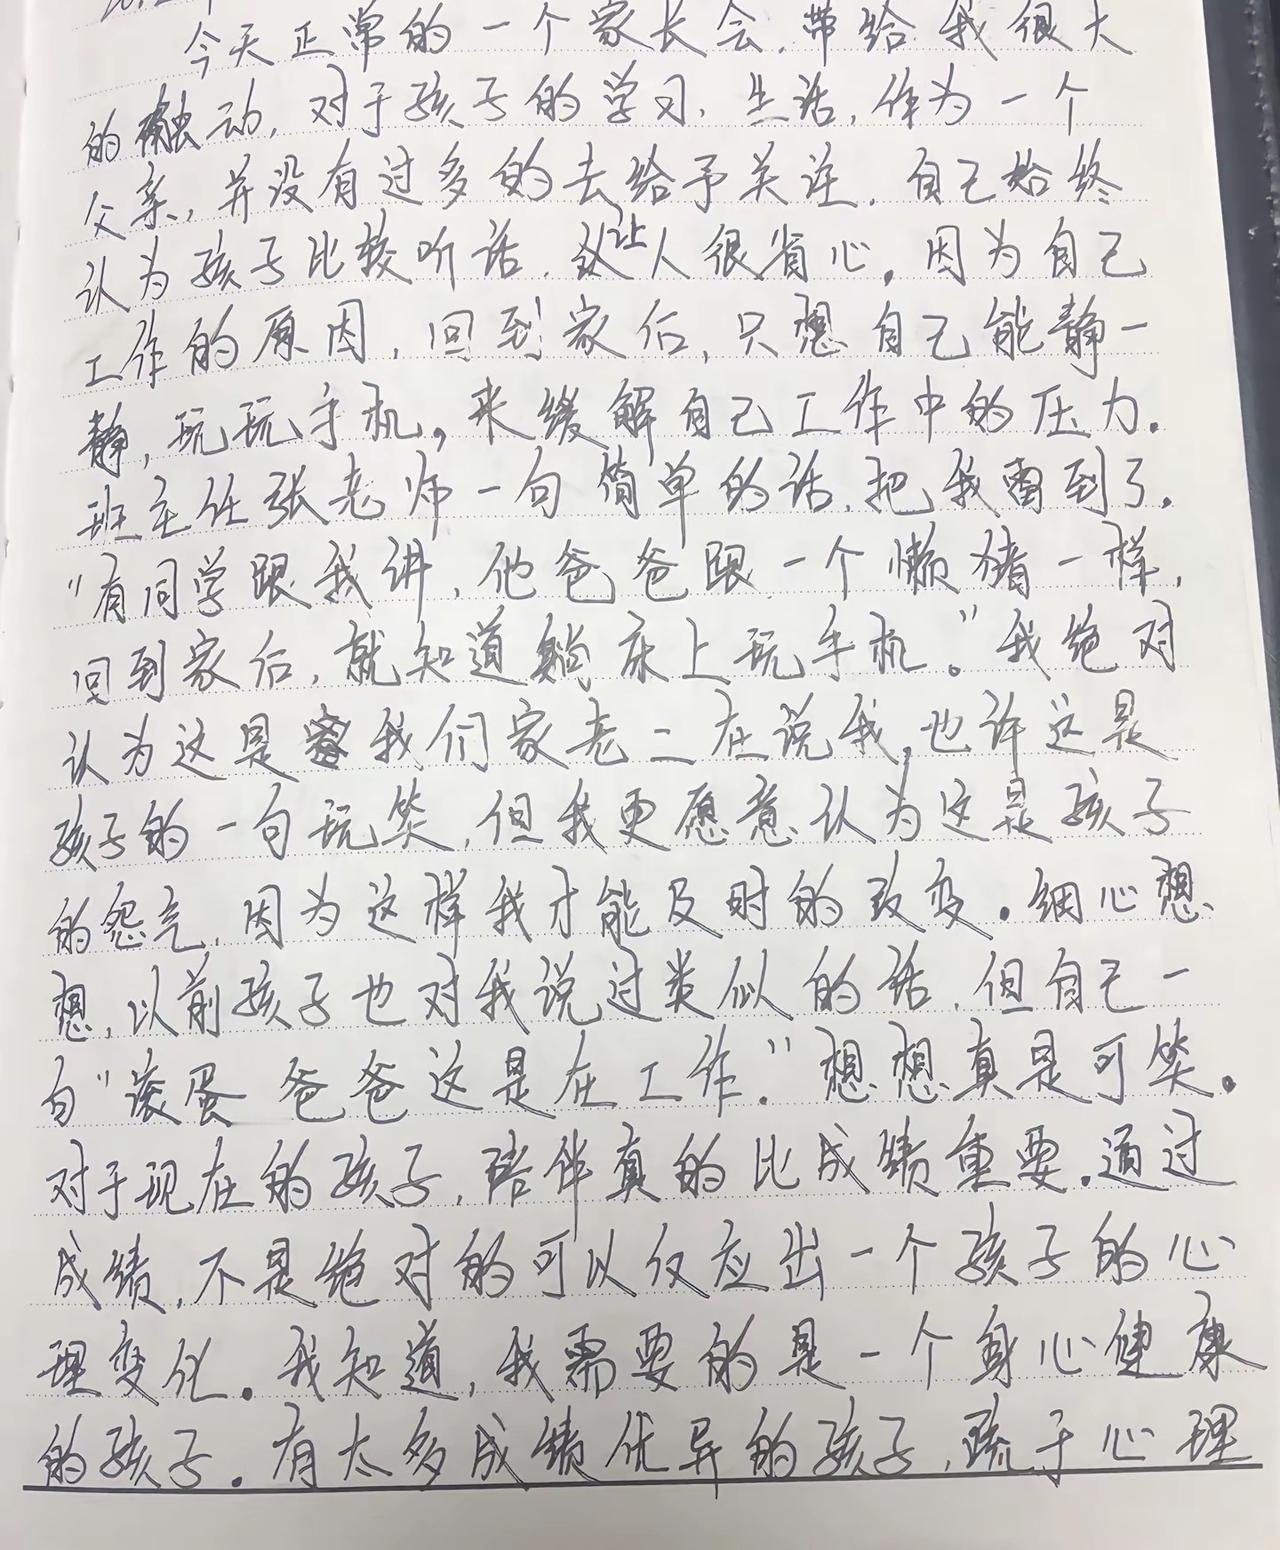 今天正常的一个家长会，带给我很大
的触动，对于孩子的学习、生活，作为一个
父亲，并没有过多的去给予关注，自己始终
认为孩子比较听话，让人很省心。因为自己
工作的原因，回到家后，只想自己能静一
静，玩玩手机。来缓解自己工作中的压力。
班主任张老师一句简单的话，把我雷到了。
“有同学跟我讲，他爸爸跟一个懒猪一样，
回到家后，就知道躺床上玩手机。”我绝对
认为这是我们家老二在说我，也许这是
孩子的一句玩笑，但我更愿意认为这是孩子
的怨气，因为这样我才能及时的改变。细心想
想，以前孩子也对我说过类似的话，但自己一
句“滚蛋 爸爸这是在工作。”想想真是可笑。
对于现在的孩子，陪伴真的比成绩重要。通过
成绩，不是绝对的可以仅应出一个孩子的心
理变化。我知道，我需要的是一个身心健康
的孩子。有太多成绩优异的孩子，疏于心理